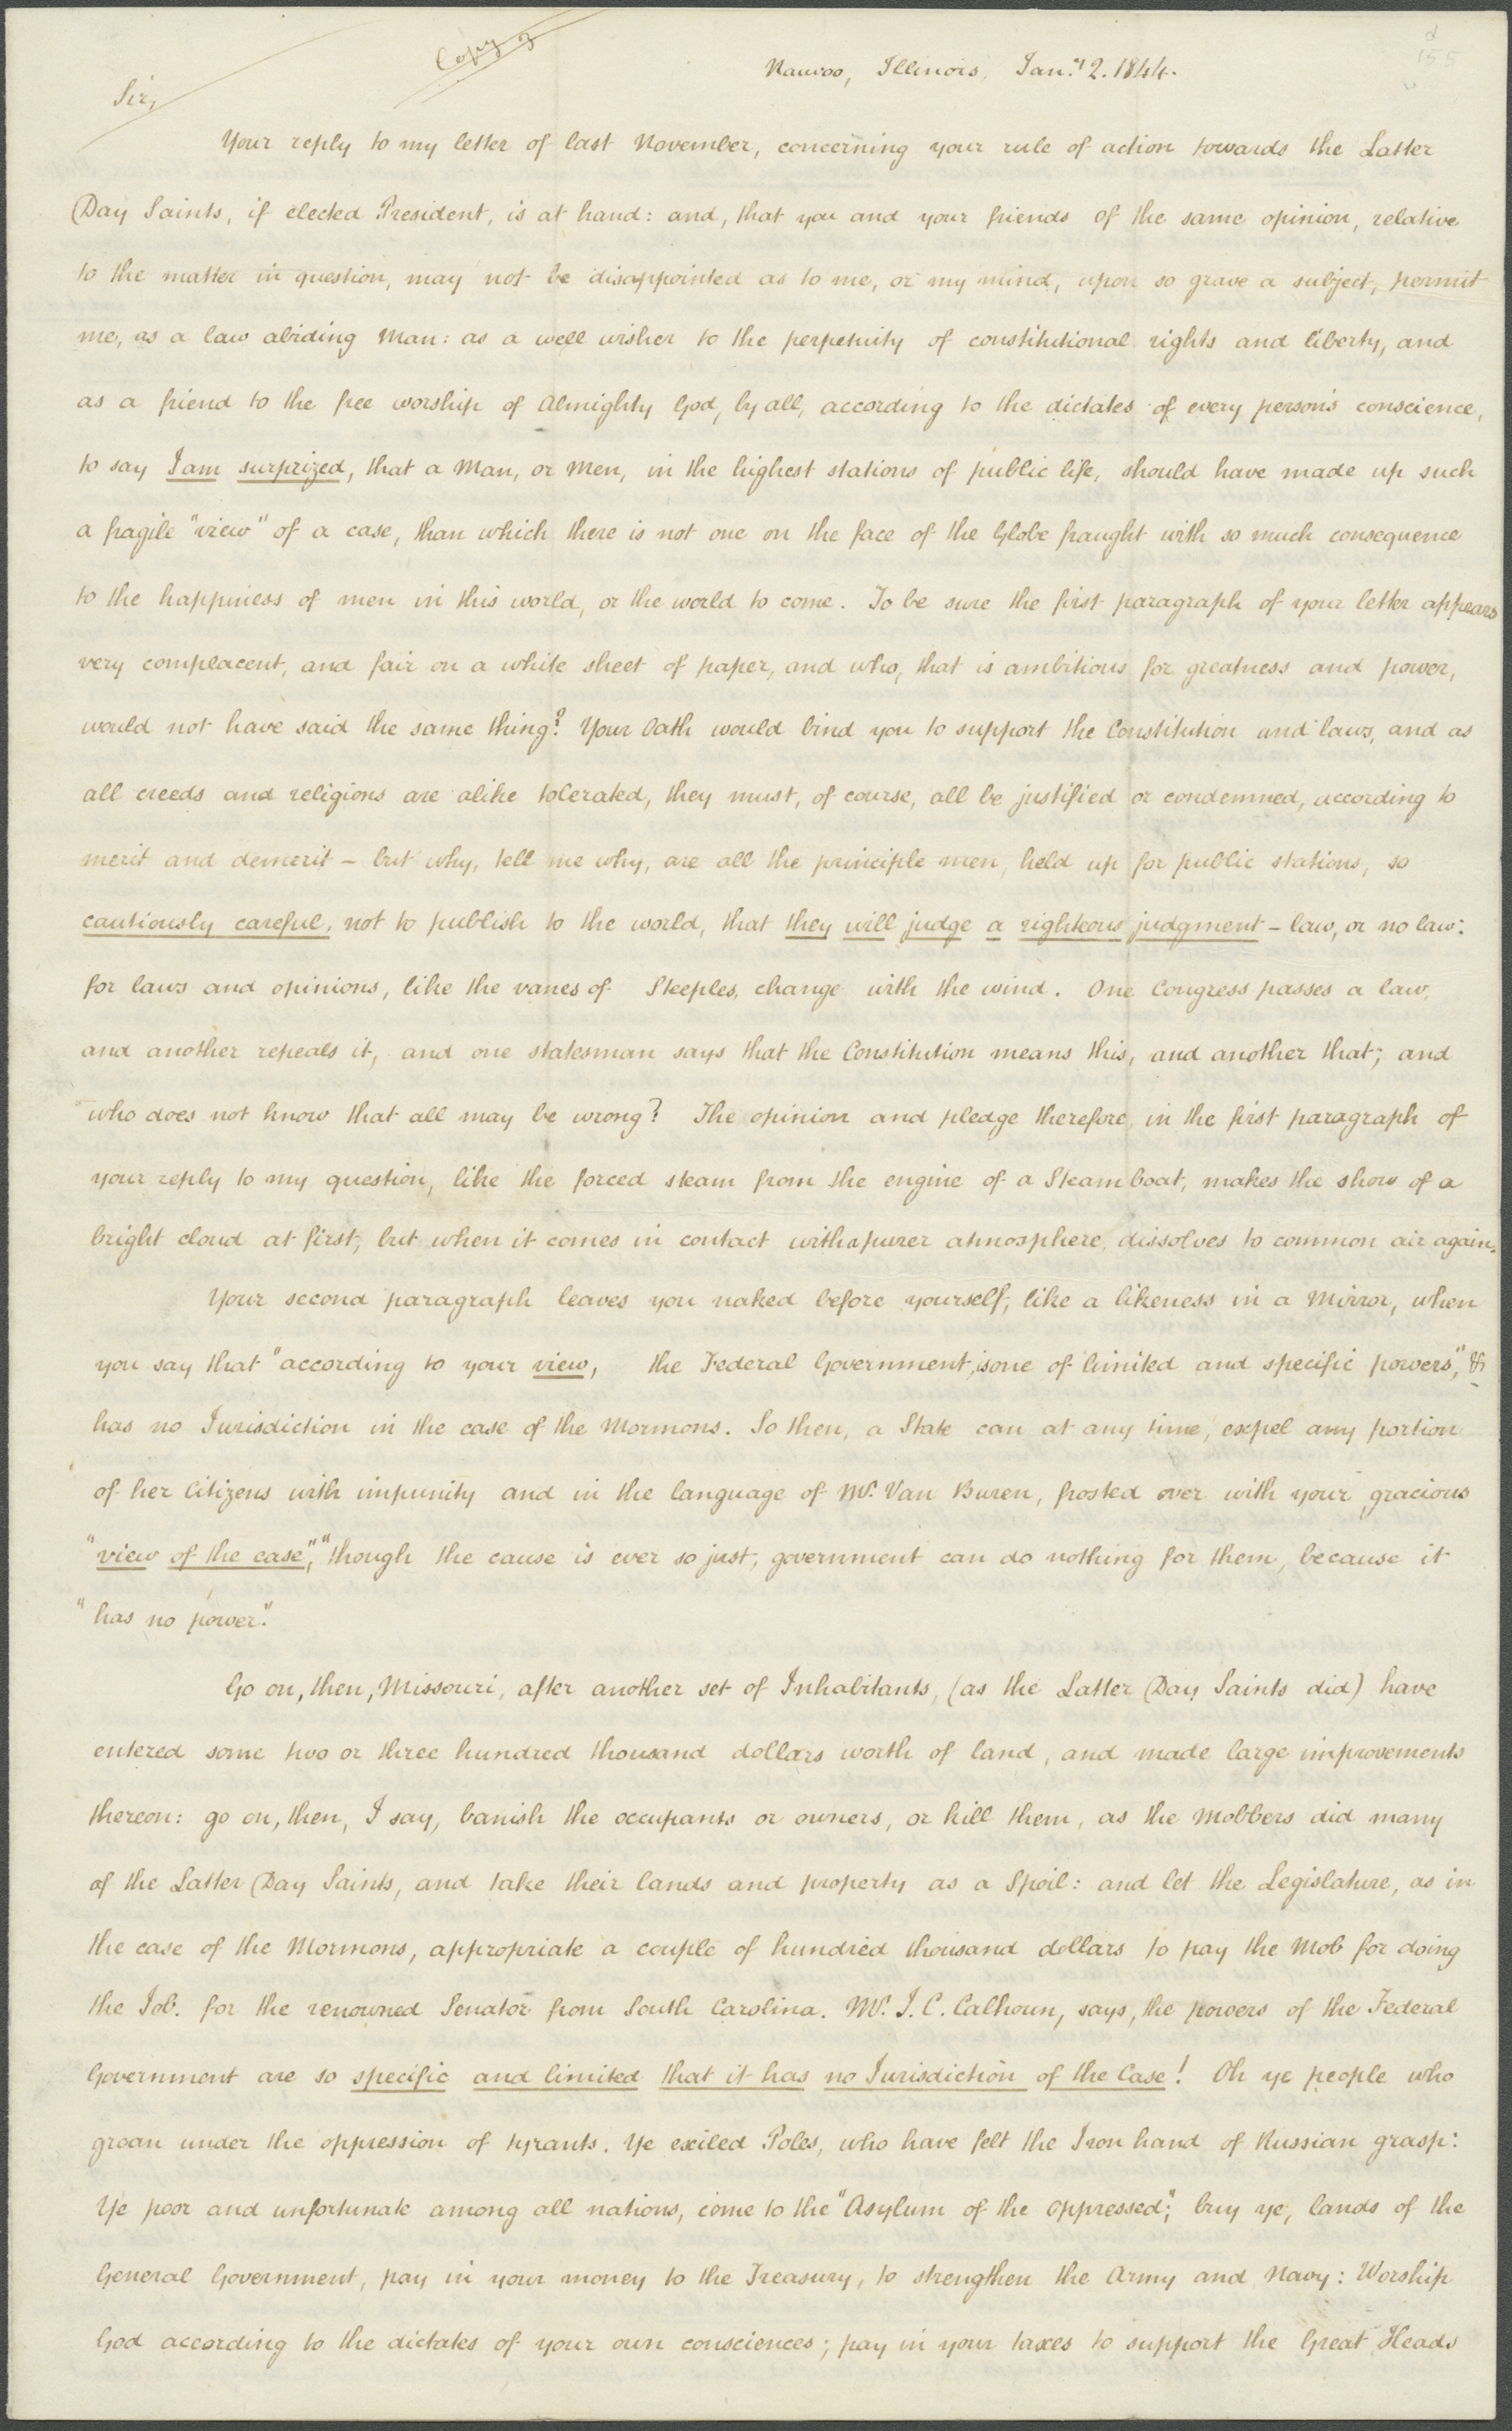 Copy
Nauvoo, Illinois, Jany 2. 1844.
Sir,
Your reply to my letter of last November, concerning your rule of action towards the Latter
Day Saints, if elected President, is at hand: and, that you and your friends of the same opinion, relative
to the matter in question, may not be disappointed as to me, or my mind, upon so grave a subject, permit
me, as a law abiding Man: as a well wisher to the perpetuity of constitutional rights and liberty, and
as a friend to the free worship of Almighty God, by all, according to the dictates of every person's conscience,
to say I am surprized, that a Man, or Men, in the highest stations of public life, should have made up such
a fragile "view" of a case, than which there is not one on the face of the Globe fraught with so much consequence
to the happiness of men in this world, or the world to come. To be sure the first paragraph of your letter appears
very complacent, and fair on a white sheet of paper, and who, that is ambitious for greatness and power,
would not have said the same thing? Your Oath would bind you to support the Constitution and laws, and as
all creeds and religions are alike tolerated, they must, of course, all be justified or condemned, according to
merit and demerit – but why, tell me why, are all the principle men, held up for public stations, so
cautiously careful, not to publish to the world, that they will judge a righteous judgment – law, or no law:
for laws and opinions, like the vanes of Steeples, change with the wind. One Congress passes a law,
and another repeals it, and one statesman says that the Constitution means this, and another that; and
who does not know that all may be wrong? The opinion and pledge therefore, in the first paragraph of
your reply to my question, like the forced steam from the engine of a Steam boat, makes the show of a
bright cloud at first, but when it comes in contact with a purer atmosphere, dissolves to common air again.
Your second paragraph leaves you naked before yourself, like a likeness in a Mirror, when
you say that "according to your view, the Federal Government, is one of limited and specific powers", &
has no Jurisdiction in the case of the Mormons. So then, a State can at any time, expel any portion
of her Citizens with impunity and in the language of Mr. Van Buren, frosted over with your gracious
"view of the case", "though the cause is ever so just, government can do nothing for them, because it
"has no power".
Go on, then, Missouri, after another set of Inhabitants, (as the Latter Day Saints did) have
entered some two or three hundred thousand dollars worth of land, and made large improvements
thereon: go on, then, I say, banish the occupants or owners, or kill them, as the Mobbers did many
of the Latter Day Saints, and take their lands and property as a Spoil: and let the Legislature, as in
the case of the Mormons, appropriate a couple of hundred thousand dollars to pay the Mob for doing
the Job. for the renowned Senator from South Carolina. Mr. J. C. Calhoun, says, the powers of the Federal
Government are so specific and limited that it has no Jurisdiction of the Case! Oh ye people who
groan under the oppression of tyrants. Ye exiled Poles, who have felt the Iron hand of Russian grasp:
Ye poor and unfortunate among all nations, come to the "Asylum of the oppressed"; buy ye, lands of the
General Government, pay in your money to the Treasury, to strengthen the Army and Navy: Worship
God according to the dictates of your own consciences; pay in your taxes to support the Great Heads